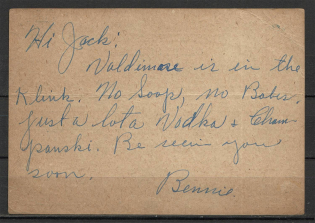 Hi Jack!
Valdimare is in the
Klink. No Soap, no Babes,
just a lota Vodka & Cham-
panski. Be seein you
soon.
Bennie.